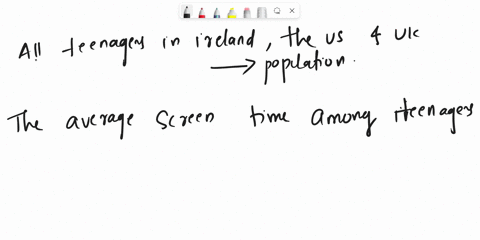 All teenagers in ireland, the us & uk
→ population.
The average screen time among teenagers